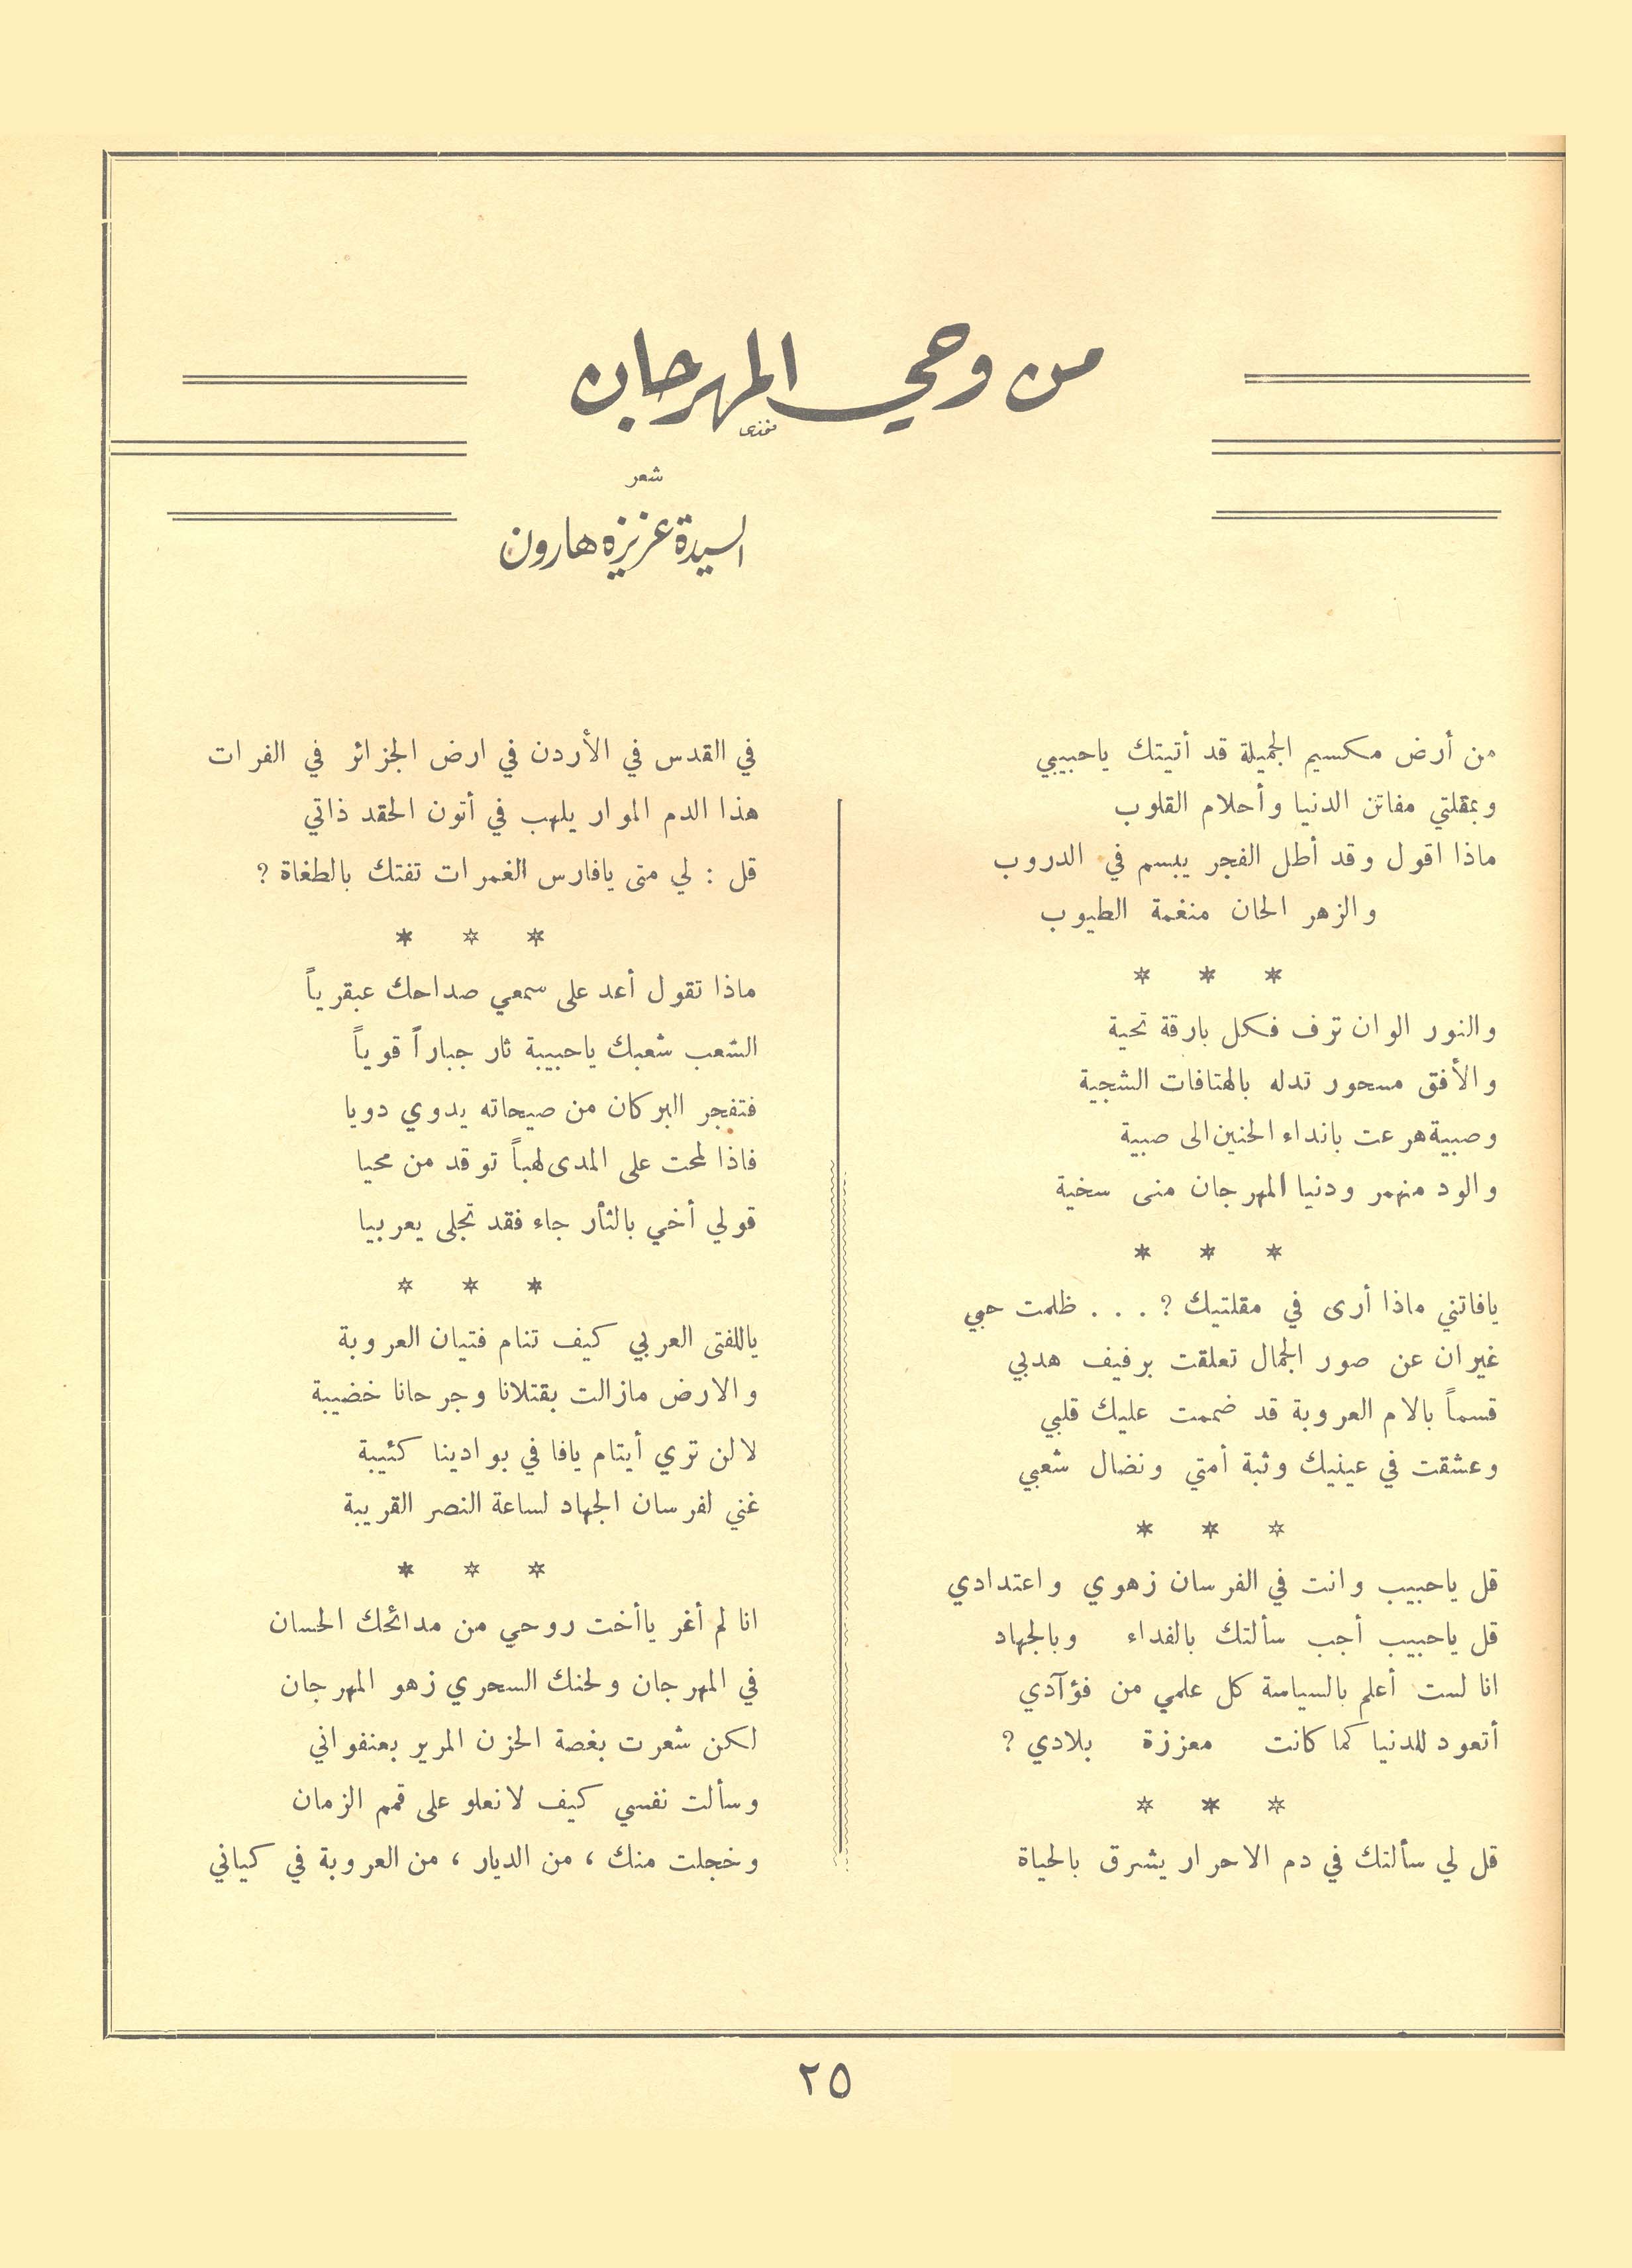 من وحي المهرجان
شعر
السيدة عزيزة هارون
من أرض مكسيم الجميلة قد أتيتك ياحبيبي
وبمقلتي مفاتن الدنيا وأحلام القلوب
ماذا اقول وقد أطل الفجر يبسم في الدروب
والزهر الحان منغمة الطيوب
* * *
والنور الوان ترف فكل بارقة تحية
والأفق مسحور تدله بالهتافات الشجية
وصبية هرعت بانداء الحنين الى صبية
والود منهمر ودنيا المهرجان منى سخية
* * *
يافاتني ماذا أرى في مقلتيك ؟ . . . ظلمت حبي
غيران عن صور الجمال تعلقت برفيف هدبي
قسماً بالام العروبة قد ضممت عليك قلبي
وعشقت في عينيك وثبة أمتي ونضال شعبي
* * *
قل ياحبيب وانت في الفرسان زهوي واعتدادي
قل ياحبيب أجب سألتك بالفداء وبالجهاد
انا لست أعلم بالسياسة كل علمي من فؤآدي
أتعود للدنيا كما كانت معززة بلادي ؟
* * *
قل لي سألتك في دم الاحرار يشرق بالحياة
في القدس في الأردن في ارض الجزائر في الفرات
هذا الدم الموار يلهب في أتون الحقد ذاتي
قل : لي متى يافارس الغمرات تفتك بالطغاة ؟
* * *
ماذا تقول أعد على سمعي صداحك عبقرياً
الشعب شعبك ياحبيبة ثار جباراً قوياً
فتفجر البركان من صيحاته يدوي دويا
فاذا لمحت على المدى لهباً توقد من محيا
قولي أخي بالثأر جاء فقد تجلى يعربيا
* * *
ياللفتى العربي كيف تنام فتيان العروبة
والارض مازالت بقتلانا وجرحانا خضيبة
لا لن تري أيتام يافا في بوادينا كئيبة
غني لفرسان الجهاد لساعة النصر القريبة
* * *
انا لم أغر ياأخت روحي من مدائحك الحسان
في المهرجان ولحنك السحري زهو المهرجان
لكن شعرت بغصة الحزن المرير بعنفواني
وسألت نفسي كيف لانعلو على قمم الزمان
وخجلت منك ، من الديار ، من العروبة في كياني
٢٥